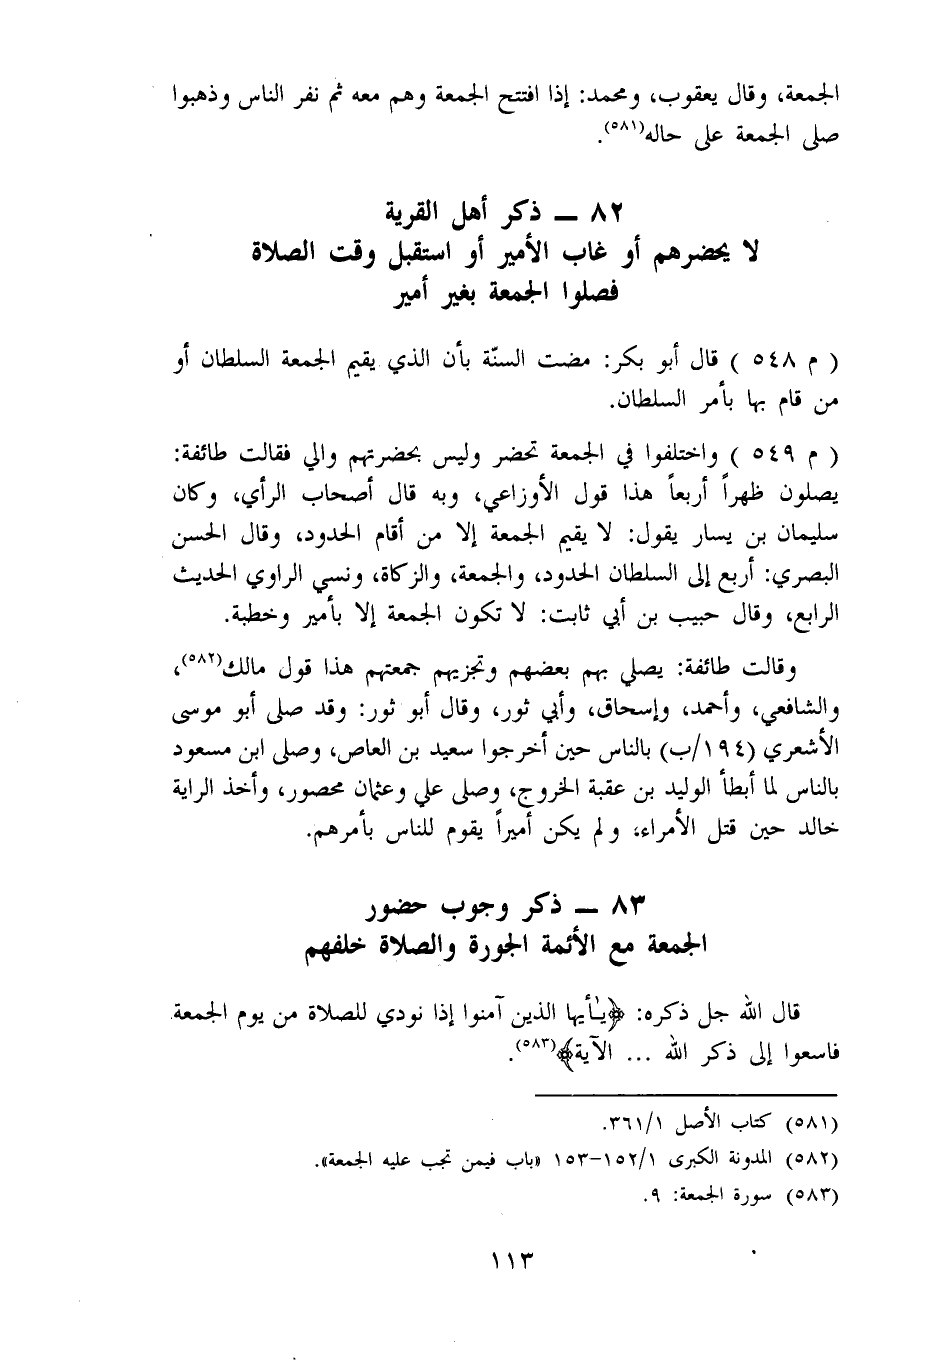 الجمعة، وقال يعقوب، ومحمد: إذا افتتح الجمعة وهم معه ثم نفر الناس وذهبوا
صلى الجمعة على حاله(٥٨١).
٨٢ ـ ذكر أهل القرية
لا يحضرهم أو غاب الأمير أو استقبل وقت الصلاة
فصلوا الجمعة بغير أمير
( م ٥٤٨ ) قال أبو بكر: مضت السنّة بأن الذي يقيم الجمعة السلطان أو
من قام بها بأمر السلطان.
( م ٥٤٩ ) واختلفوا في الجمعة تحضر وليس بحضرتهم والي فقالت طائفة:
يصلون ظهراً أربعاً هذا قول الأوزاعي، وبه قال أصحاب الرأي، وكان
سليمان بن يسار يقول: لا يقيم الجمعة إلا من أقام الحدود، وقال الحسن
البصري: أربع إلى السلطان الحدود، والجمعة، والزكاة، ونسي الراوي الحديث
الرابع، وقال حبيب بن أبي ثابت: لا تكون الجمعة إلا بأمير وخطبة.
وقالت طائفة: يصلي بهم بعضهم وتجزيهم جمعتهم هذا قول مالك(٥٨٢)،
والشافعي، وأحمد، وإسحاق، وأبي ثور، وقال أبو ثور: وقد صلى أبو موسى
الأشعري (١٩٤/ب) بالناس حين أخرجوا سعيد بن العاص، وصلى ابن مسعود
بالناس لما أبطأ الوليد بن عقبة الخروج، وصلى علي وعثمان محصور، وأخذ الراية
خالد حين قتل الأمراء، ولم يكن أميراً يقوم للناس بأمرهم.
٨٣ ـ ذكر وجوب حضور
الجمعة مع الأئمة الجورة والصلاة خلفهم
قال الله جل ذكره: ﴿يـٰأيها الذين آمنوا إذا نودي للصلاة من يوم الجمعة
فاسعوا إلى ذكر الله ... الآية﴾(٥٨٣).
(٥٨١) كتاب الأصل ٣٦١/١.
(٥٨٢) المدونة الكبرى ١٥٢/١-١٥٣ «باب فيمن تجب عليه الجمعة».
(٥٨٣) سورة الجمعة: ٩.
١١٣